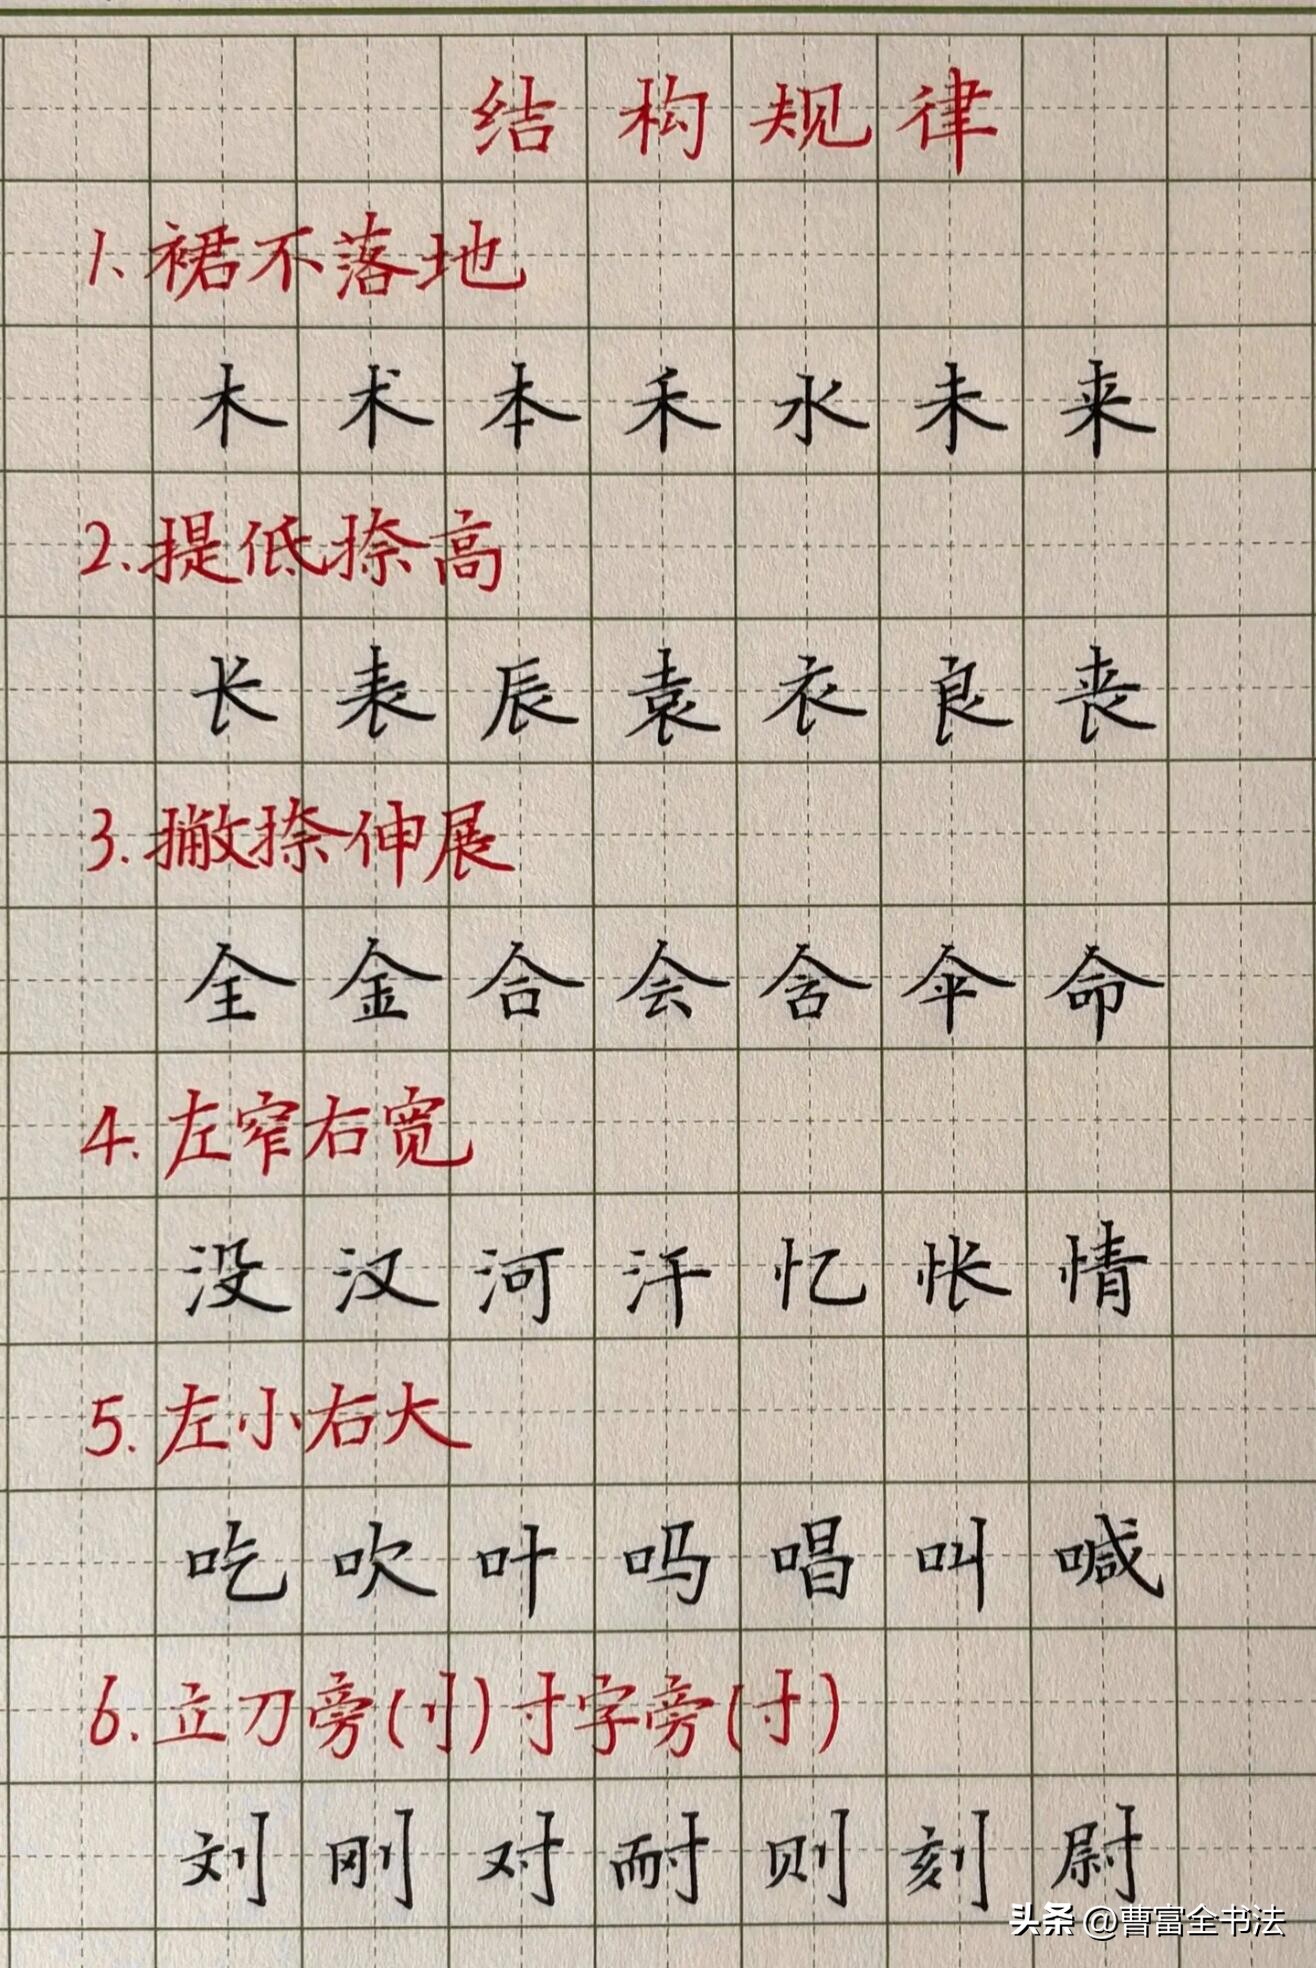 结构规律
1、裙不落地
木术本禾水未来
2.提低捺高
长表辰袁衣良丧
3.撇捺伸展
全金合会含伞命
4.左窄右宽
没汉河汗忆怅情
5.左小右大
吃吹叶吗唱叫喊
6.立刀旁(刂)寸字旁(寸)
刘刚对耐则刻尉
头条 @曹富全书法